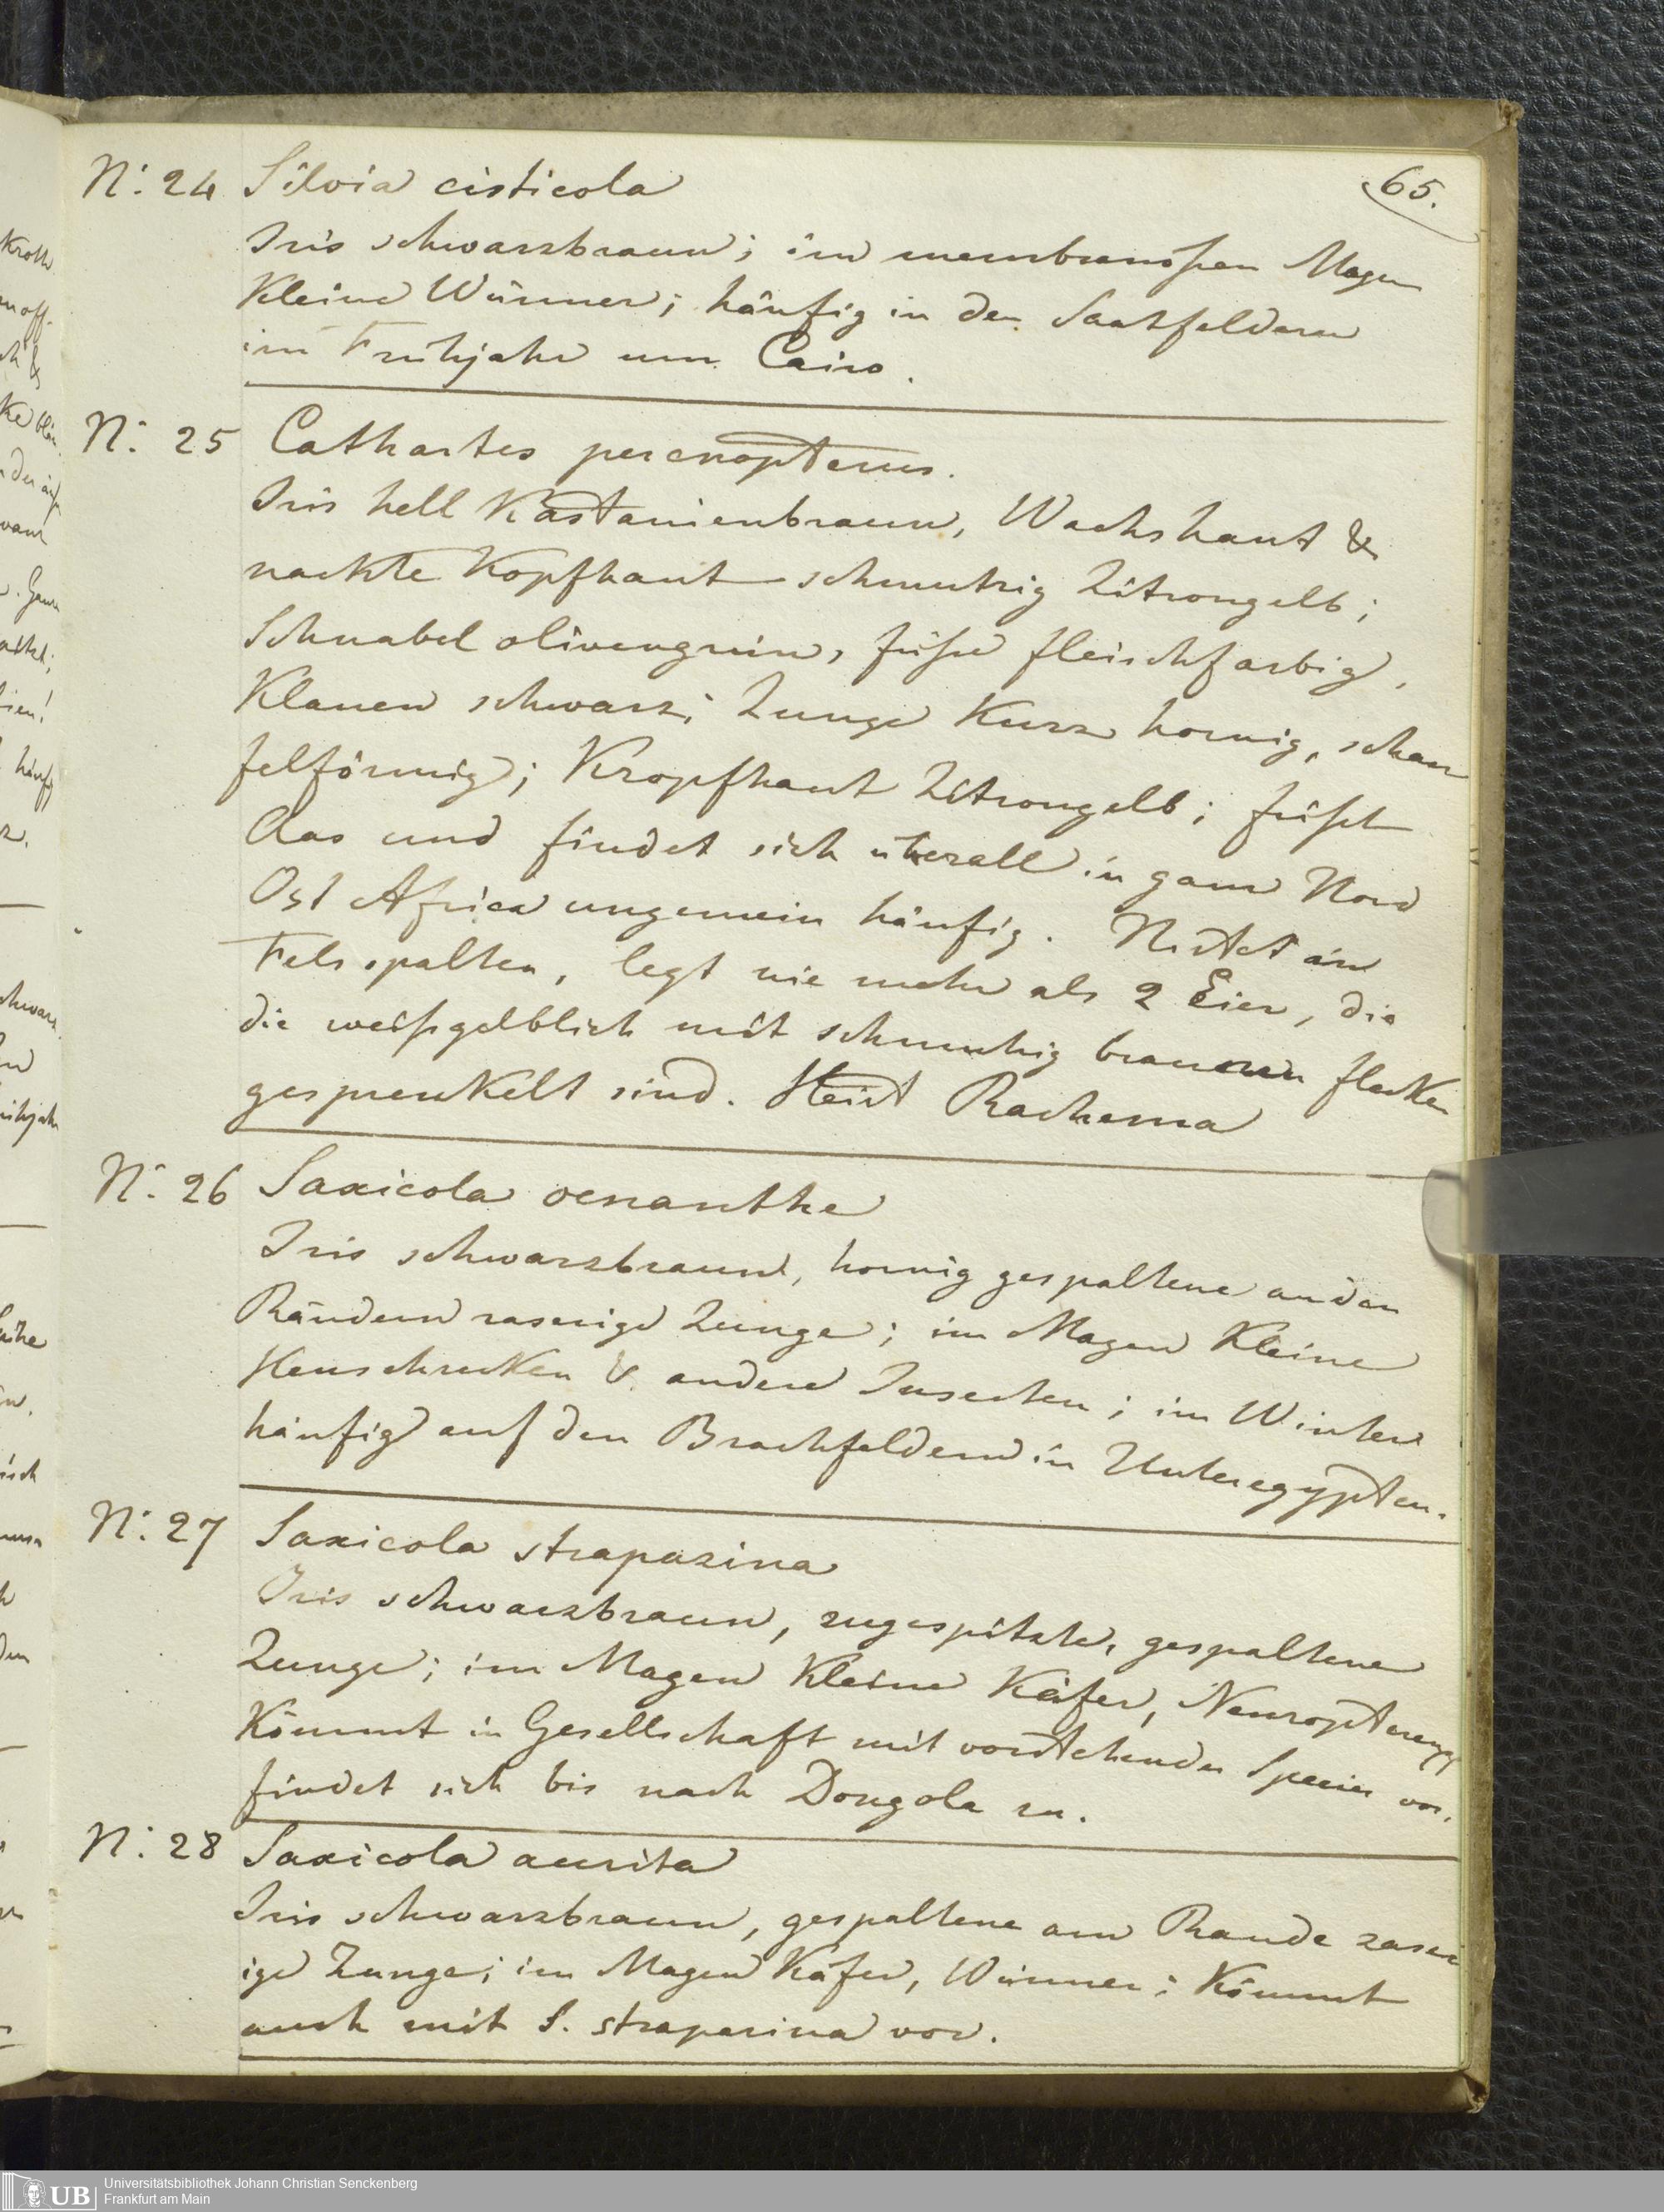 65.
N: 24 Silvia cisticola
Iris schwarzbraun; im membranößen Magen
Kleine Würmer; häufig in den Saatfeldern
im Frühjahr um Cairo.
N: 25 Cathartes percnopterus.
Iris hell Kastanienbraun, Wachshaut &
nackte Kopfhaut schmutzig Zitrongelb;
Schnabel olivengrün, füße fleischfarbig,
Klauen schwarz; Zunge Kurz hornig, schau
felförmig; Kropfhaut Zitrongelb; frißt
Aas und findet sich überall in ganz Nord
Ost Africa ungemein häufig. Nistet in
Felsspalten, legt nie mehr als 2 Eier, die
die weißgelblich mit schmutzig braunen flecken
gesprenkelt sind. Heist Rachema
N: 26 Saxicola oenanthe
Iris schwarzbraun, hornig gespaltene an den
Rändern zaserige Zunge; im Magen Kleine
Heuschrecken & andere Insecten; im Winter
häufig auf den Brachfeldern in Unteregypten.
N: 27 Saxicola strapazina
Iris schwarzbraun, zugespitzte, gespaltene
Zunge; im Magen Kleine Käfer, Neuropteren
Kömmt in Gesellschaft mit vorstehender Species vor,
findet sich bis nach Dongola zu.
N: 28 Saxicola aurita
Iris schwarzbraun, gespaltene am Rande zaser
ige Zunge; im Magen Käfer, Würmer; Kömmt
auch mit S. strapazina vor.
UB Universitätsbibliothek Johann Christian Senckenberg
Frankfurt am Main